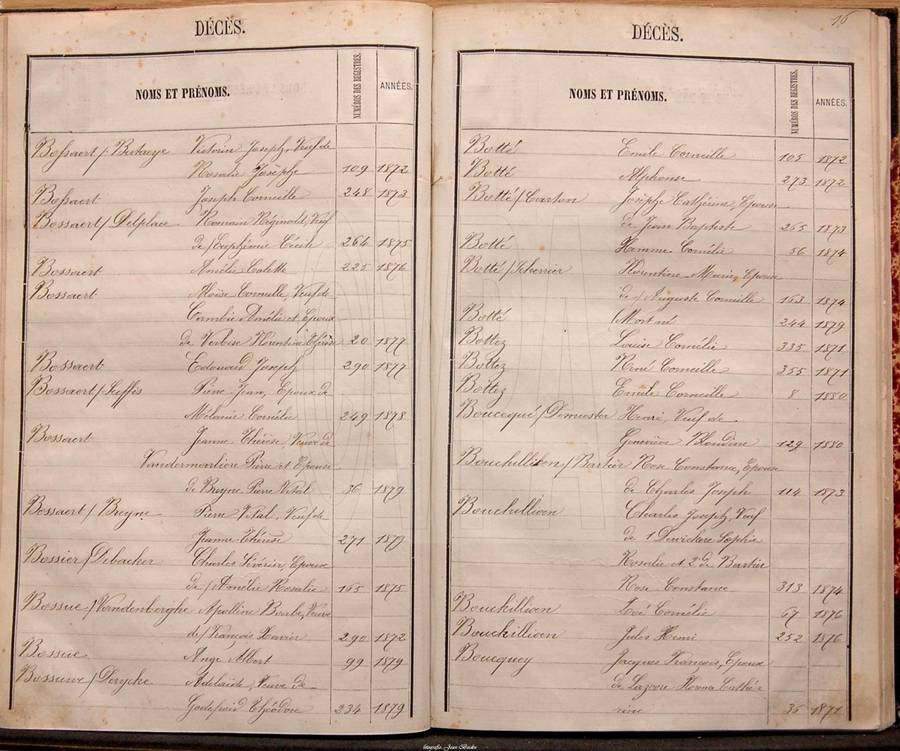 DÉCÈS.
NOMS ET PRÉNOMS. NUMÉROS DES REGISTRES ANNÉES.
Bossaert / Bertreye Victorin Joseph, Veuf de
Rosalie Josèphe 109 1872
Bossaert Joseph Corneille 248 1873
Bossaert / Delplace Romain Réginald, Veuf
de / Euphémie Cécile 264 1875
Bossaert Amélie Colette 225 1876
Bossaert Aloïse Corneille, Veuf de
Amélie et Epoux
de Florentine Thérèse 20 1877
Bossaert Edouard Joseph 290 1877
Bossaert / Pierre Jean, Epoux de
Mélanie Cornélie 249 1878
Bossaert Jeanne Thérèse Veuve de
Vandermarlière Pierre et Epouse
de Breyne Pierre Vital 36 1879
Bossaert / Breyne Pierre Vital, Veuf de
Jeanne Thérèse 271 1879
Bossier / Debacker Charles Séverin, Epoux
de / Amélie Rosalie 165 1875
Bossue / Vandenberghe Apolline Barbe, Veuve
de / François Xavier 290 1872
Bossue Ange Albert 99 1879
Bossuwe / Derycke Adelaïde, Veuve de
Godefroid Théodore 234 1879
16
DÉCÈS.
NOMS ET PRÉNOMS. NUMÉROS DES REGISTRES ANNÉES.
Botté Emile Corneille 105 1872
Botté Alphonse 273 1872
Botté / Carton Josèphe Cathérine, Epouse
de Jean Baptiste 255 1873
Botté Cornélie 56 1874
Botté / Florentine Marie, Epouse
de / Auguste Corneille 153 1874
Botté Mort né 244 1879
Bottez Louise Cornélie 335 1871
Bottez René Corneille 355 1871
Bottez Emile Corneille 8 1880
Boucqué / Demeester Henri, Veuf de
Geneviève Blondine 129 1880
Bouchillion / Bartier Rose Constance, Epouse
de Charles Joseph 114 1873
Bouchillion Charles Joseph, Veuf
de 1 Sophie
Rosalie et 2 de Bartier
Rose Constance 313 1874
Bouchillion Zoé Cornélie 67 1876
Bouchillion Jules Henri 252 1876
Boucquey Jacques François, Epoux
de Cathé-
rine 35 1871
fotografie: Jean Boucke